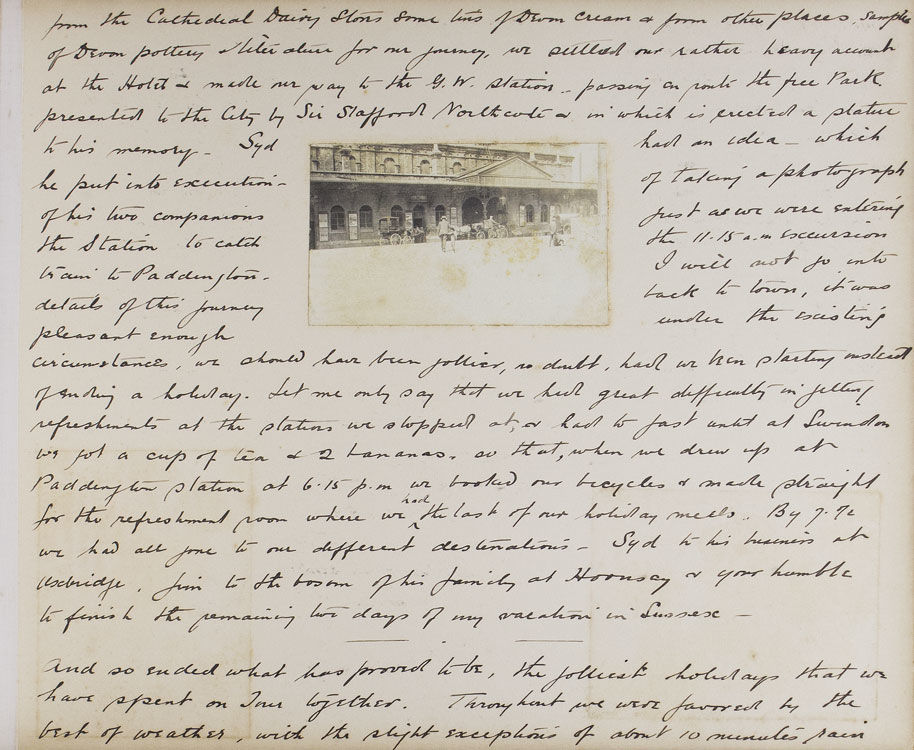 from the Cathedral Dairy Stores some tins of Devon cream & from other places, samples
of Devon pottery & literature for our journey, we settled our rather heavy account
at the Hotel & made our way to the G.W. station.. passing en route the free Park
presented to the City by Sir Stafford Northcote & in which is erected a statue
to his memory - Syd had an idea - which
he put into execution - of taking a photograph
of his two companions just as we were entering
the Station to catch the 11.15 a.m excursion
train to Paddington. I will not go into
details of this journey back to town, it was
pleasant enough under the existing
circumstances, we should have been jollier, no doubt, had we been starting instead
of ending a holiday. Let me only say that we had great difficulty in getting
refreshments at the stations we stopped at, & had to fast until at Swindon
we got a cup of tea & 2 bananas. so that, when we drew up at
Paddington station at 6.15 p.m we booked our bicycles & made straight
for the refreshment room where we had the last of our holiday meals.. By
we had all gone to our different destinations - Syd to his business at
Uxbridge, Jim to the bosom of his family at Hornsey & your humble
to finish the remaining two days of my vacation in Sussex -
And so ended what has proved to be, the jolliest holidays that we
have spent on Tour together. Throughout we were favored by the
best of weather, with the slight exceptions of about 10 minutes rain